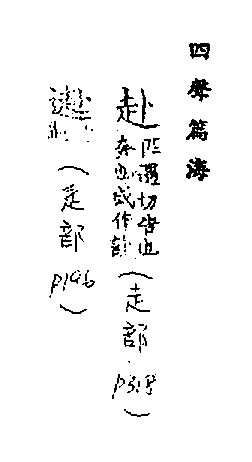 四聲篇海
赴 匹遇切告也
奔也或作訃 (走部 P318)
(辵部 P196)